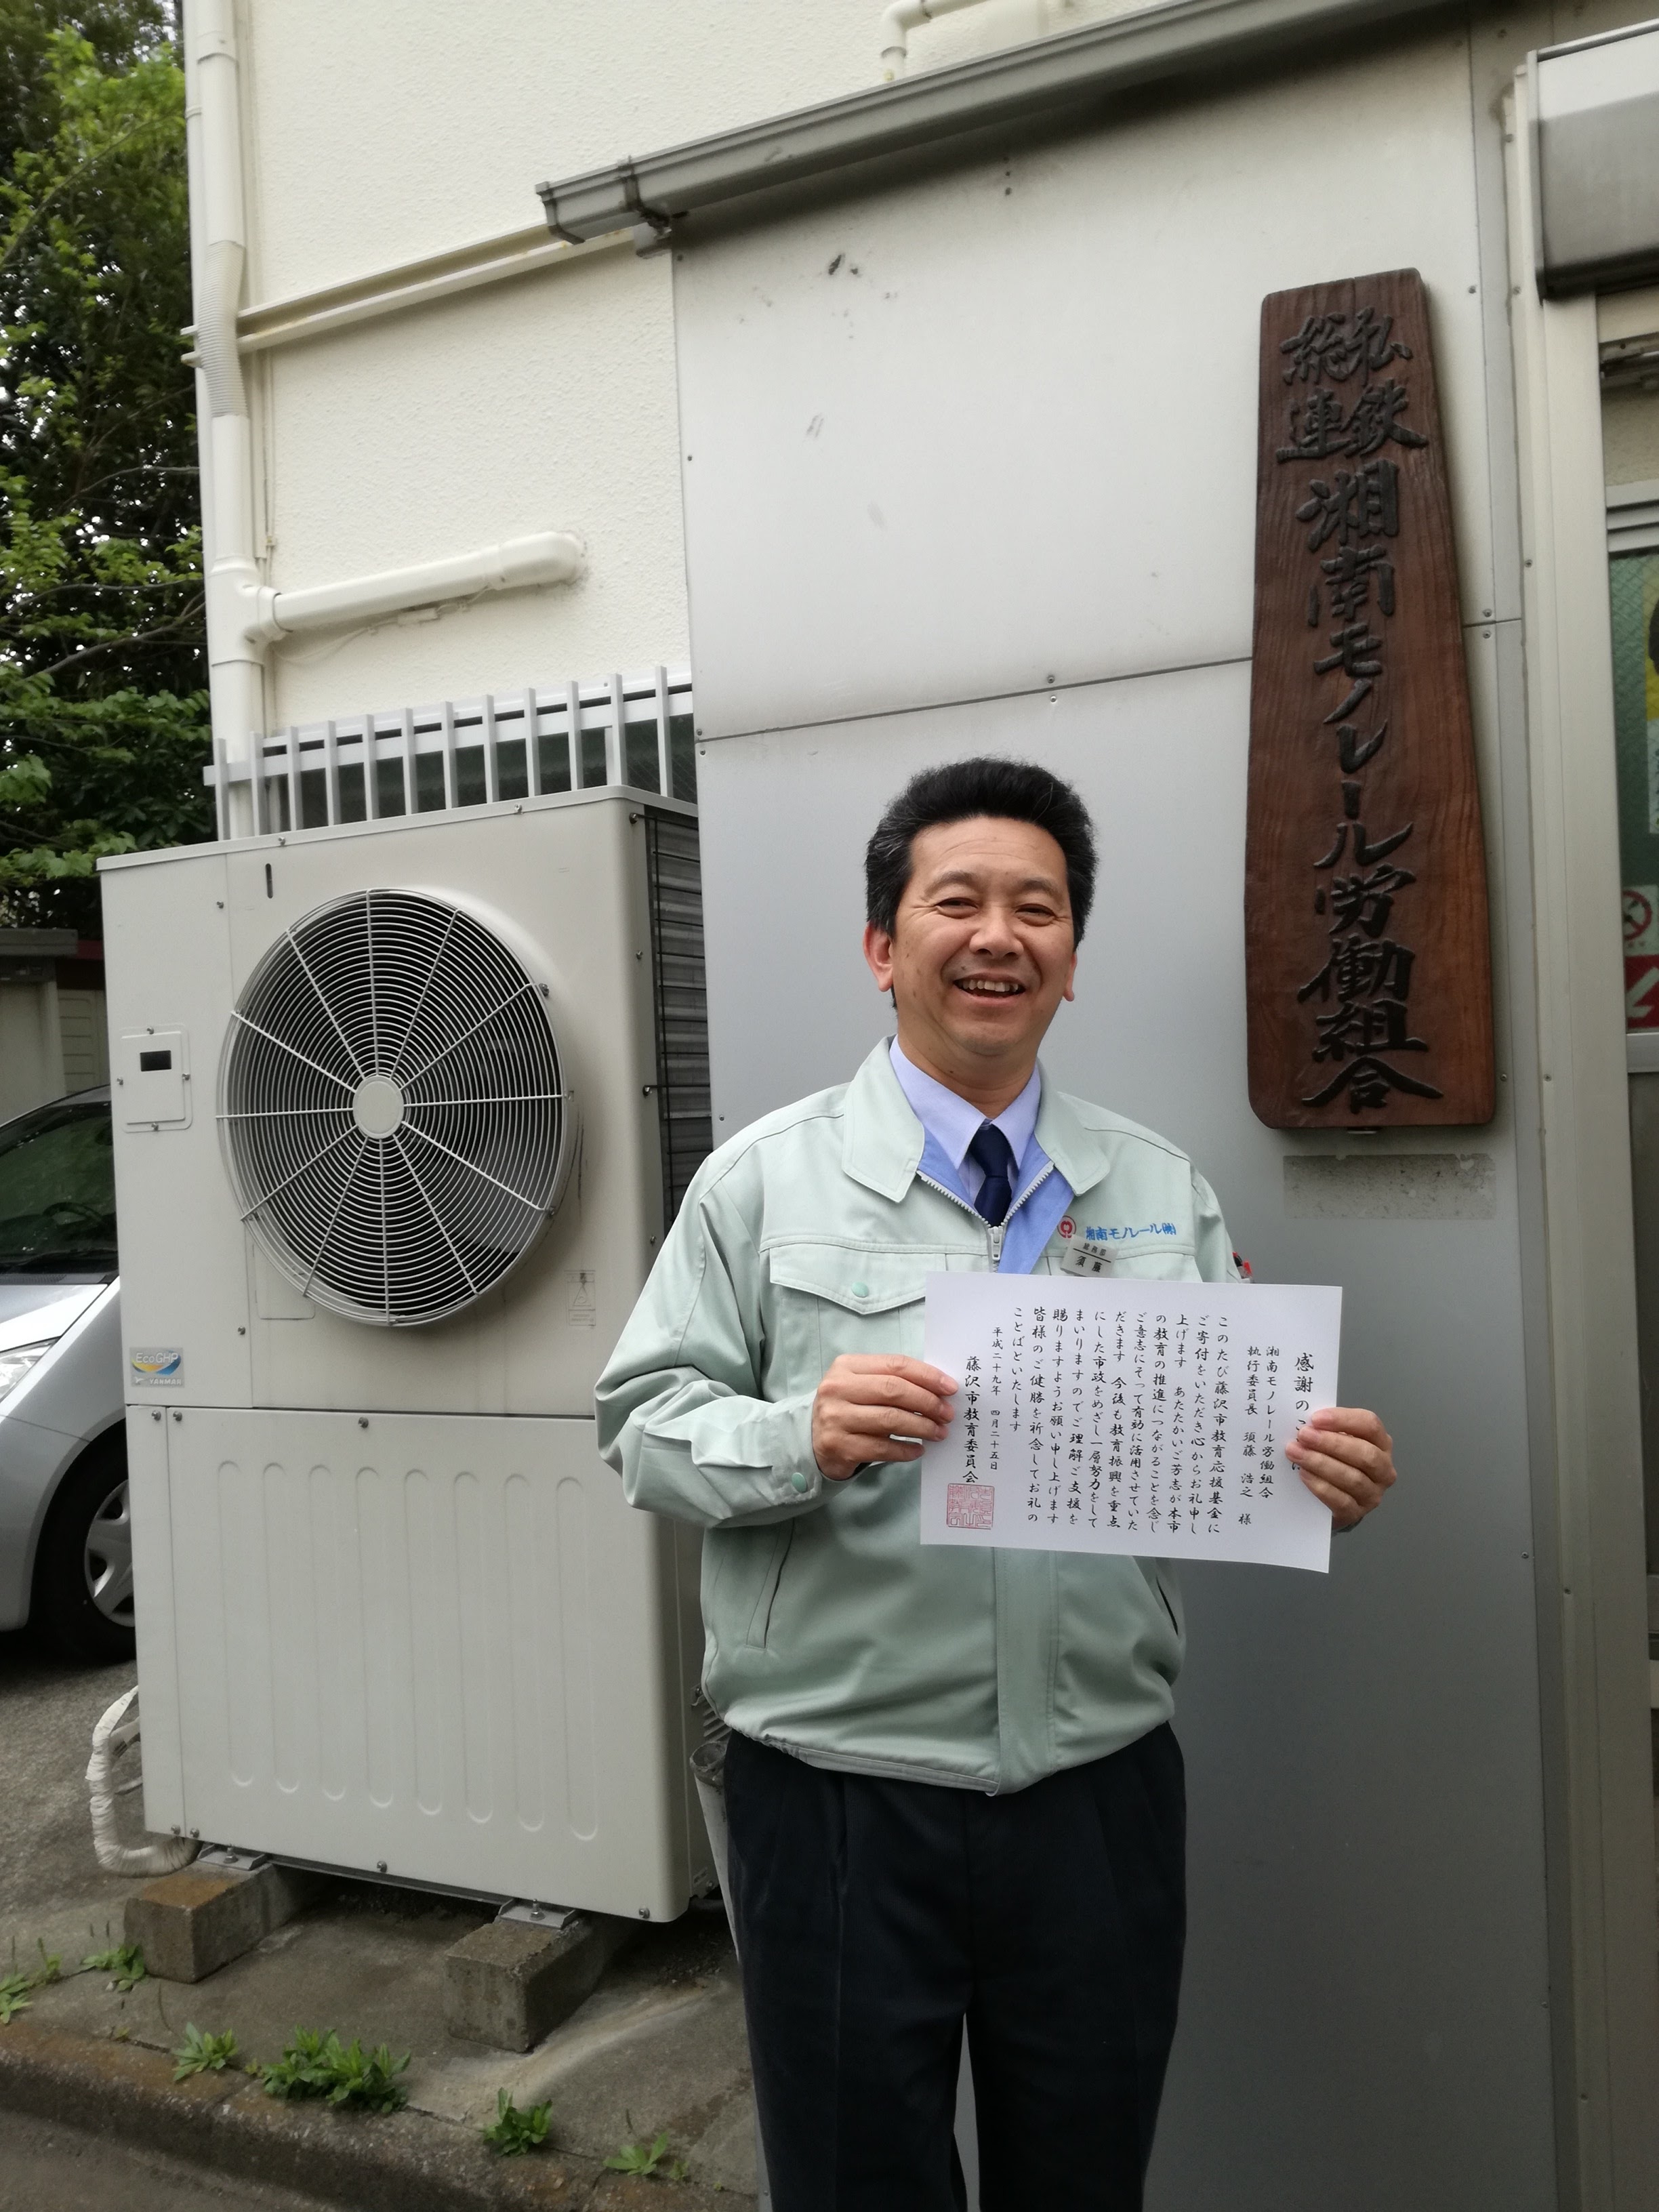 私鉄
総連
湘南モノレール労働組合
湘南モノレール㈱
総務部
須藤
感謝のこ
湘南モノレール労働組合
執行委員長 須藤 浩之 様
このたび藤沢市教育応援基金に
ご寄付をいただき心からお礼申し
上げます あたたかいご芳志が本市
の教育の推進につながることを念じ
ご意志にそって有効に活用させていた
だきます 今後も教育振興を重点
にした市政をめざし一層努力をして
まいりますのでご理解ご支援を
賜りますようお願い申し上げます
皆様のご健勝を祈念してお礼の
ことばといたします
平成二十九年 四月二十五日
藤沢市教育委員会
EcoGHP
YANMAR